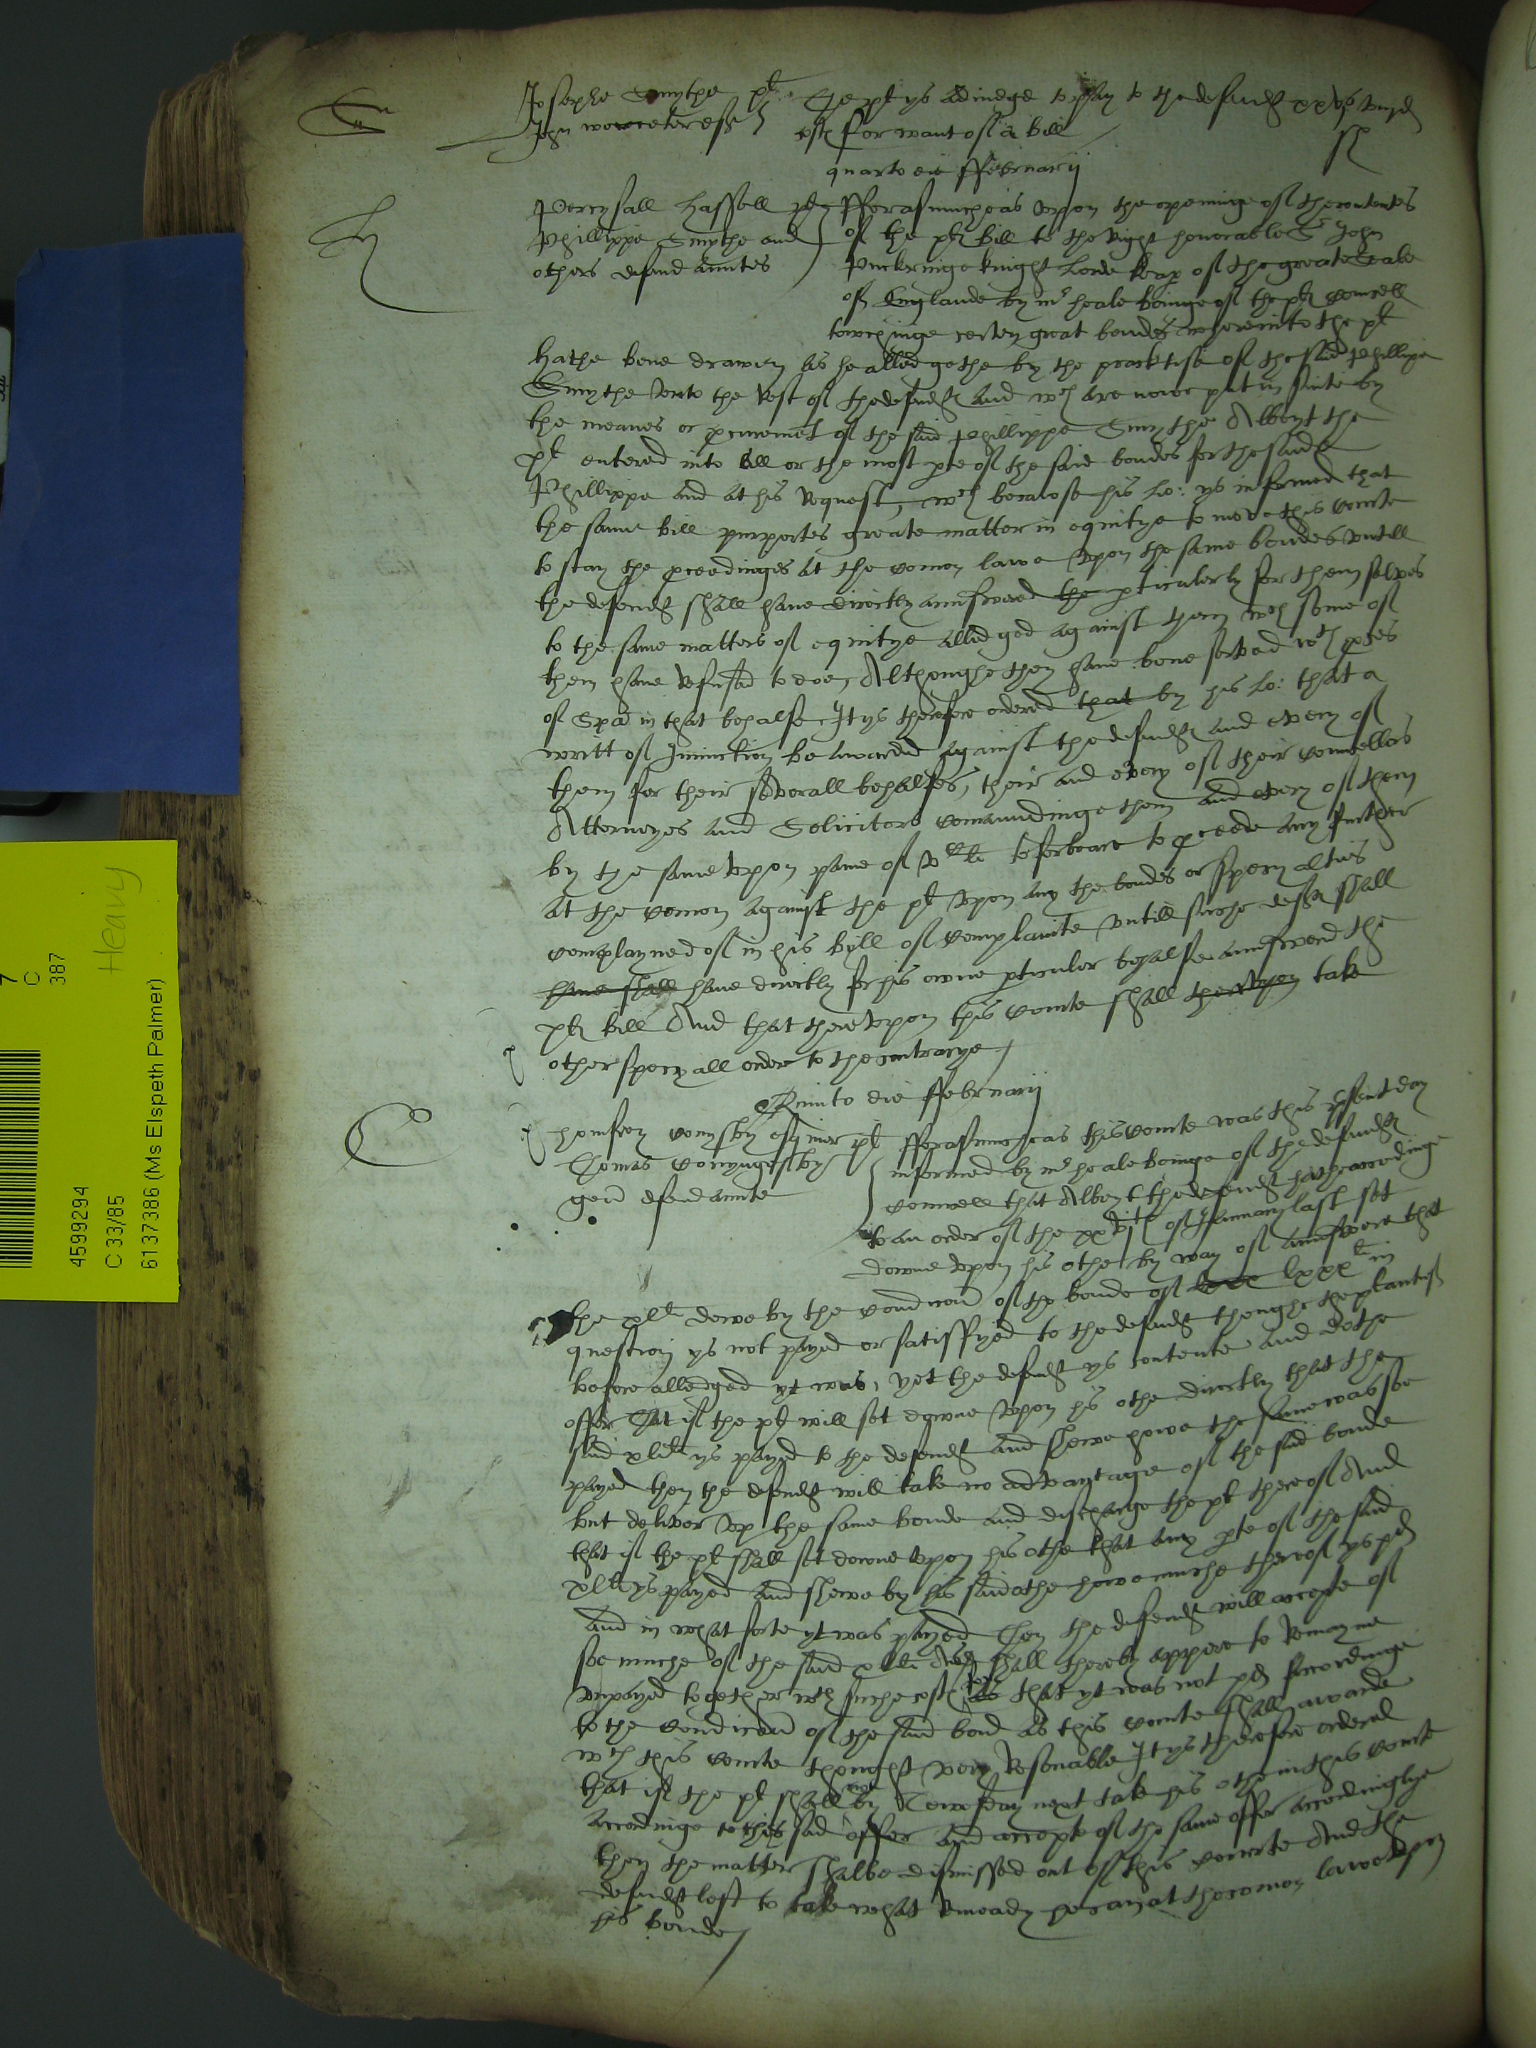 Josephe Smythe plt The plt ys adiudge to pay to the defendt xxvjs viijd
John worceter deft costs for want of a bill
quarto die ffebruarij
Percyfall Hassell plt fforasmucheas vpon the openinge of the contentes
Phillippe Smythe and of the plts bill to the right honorable Sr John
others defendauntes Puckeringe knight Lorde keaper of the greate Seale
of Englande by mr heale beinge of the plts councell
towchinge certen great bondes whereinto the plt
hathe bene drawen as he alledgethe by the practise of the said Phillipe
Smythe vnto the rest of the defendts and wch are nowe put in suite by
the meanes or procurement of the said Phillippe Smythe Albeyt the
plt entered into all or the most parte of the said bondes for the said
Phillippe and at his request, wch because his Lo: ys informed that
the same bill purportes greate matter in equitye to move this courte
to stay the proceedinges at the comon lawe vpon the same bondes vntill
the defendts shall have directly aunswered the perticulerly for them selves
to the same matters of equitye alledged against them wch some of
them have refused to doe, Althoughe they have bene served wth proces
of Spa in that behalfe It ys therefore ordered that by his Lo: that a
writt of Iniunction be awarded against the defendts and every of
them for their severall behalfes, their and every of their councellors
Atturneyes and Solicitors comaundinge them and every of them
by the same vpon payne of vCli to forbeare to proceede any further
at the comon against the plt vpon any the bondes or specyalties
complayned of in his byll of complainte vntill suche deft shall
have shall have directly for his owne perticuler behalfe aunswered the
plts bill And that therevpon this courte shall therevpon take
other specyall order to the contrarye
Quinto die ffebruarij
homfrey conysby esquier plt fforasmucheas this courte was this present day
Thomas Conyngesby informed by mr heale beinge of the defendts
gent defendaunte councell that Albeyt the defendt hathe accordinge
to an order of the xxvjth of Januarye last set
downe vpon his othe by way of aunswere that
the xlli dewe by the condicion of the bonde of lxxxli in
question ys not payed or satisfyed to the defendt thoughe the plantiff
before alledged yt was, yet the defendt ys contente and dothe
offer That if the plt will set downe vpon his othe directly that the
said xlli ys payed to the defendt and shewe howe the same was soe
payed then the defendt will take no advantage of the said bonde
but deliver vp the same bonde and discharge the plt thereof And
that if the plt shall set downe vpon his othe that any parte of the said
xlli ys payed and shewe by his said othe howe muche thereof ys pd
and in what sorte yt was payed Then the defendt will accepte of
soe muche of the said xlli as shall thereby appere to remayne
vnpayed together wth suche costes that yt was not pd accordinge
to the condicion of the said bond as this courte shall awarde
wch this courte thought very resonable It ys therefore ordered
that if the plt shall not by Tewsday next take his othe in this courte
accordinge to the said offer and accepte of the same offer accordinglye
then the matter shalbe dismissed out of this courte And the
defendt left to take what remeady he can at the comon lawe vpon
his bonde
4599294
C 33/85
6137386 (Ms Elspeth Palmer)
7
C
387
Heavy